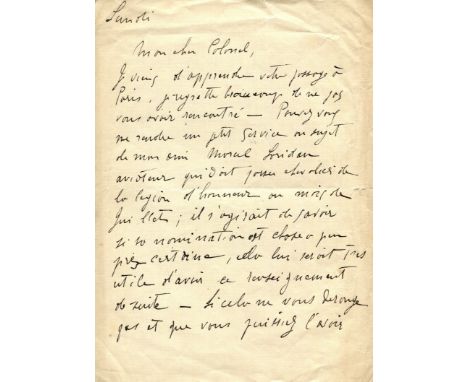 Lundi
Mon cher Colonel,
Je viens d'apprendre votre passage à
Paris, je regrette beaucoup de ne pas
vous avoir rencontré — Pouvez vous
me rendre un ptit service au sujet
de mon ami Marcel
aviateur qui doit passer chevalier de
la legion d'honneur au mois de
Juillet ; il s'agirait de savoir
si sa nomination est chose a peu
près certaine, cela lui serait très
utile d'avoir ce renseignement
de suite — Si cela ne vous derange
pas et que vous puissiez l'avoir